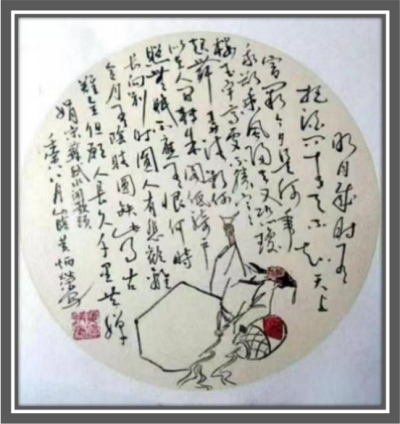 明月几时有
把酒问青天不知天上
宫阙今夕是何年
我欲乘风归去又恐琼
楼玉宇高处不胜寒
起舞弄清影何
似在人间转朱阁低绮户
照无眠不应有恨何时
长向别时圆人有悲欢離
合月有阴晴圆缺此事古
难全但愿人长久千里共婵
娟宋蘇轼水调歌頭
八月
炳荣写